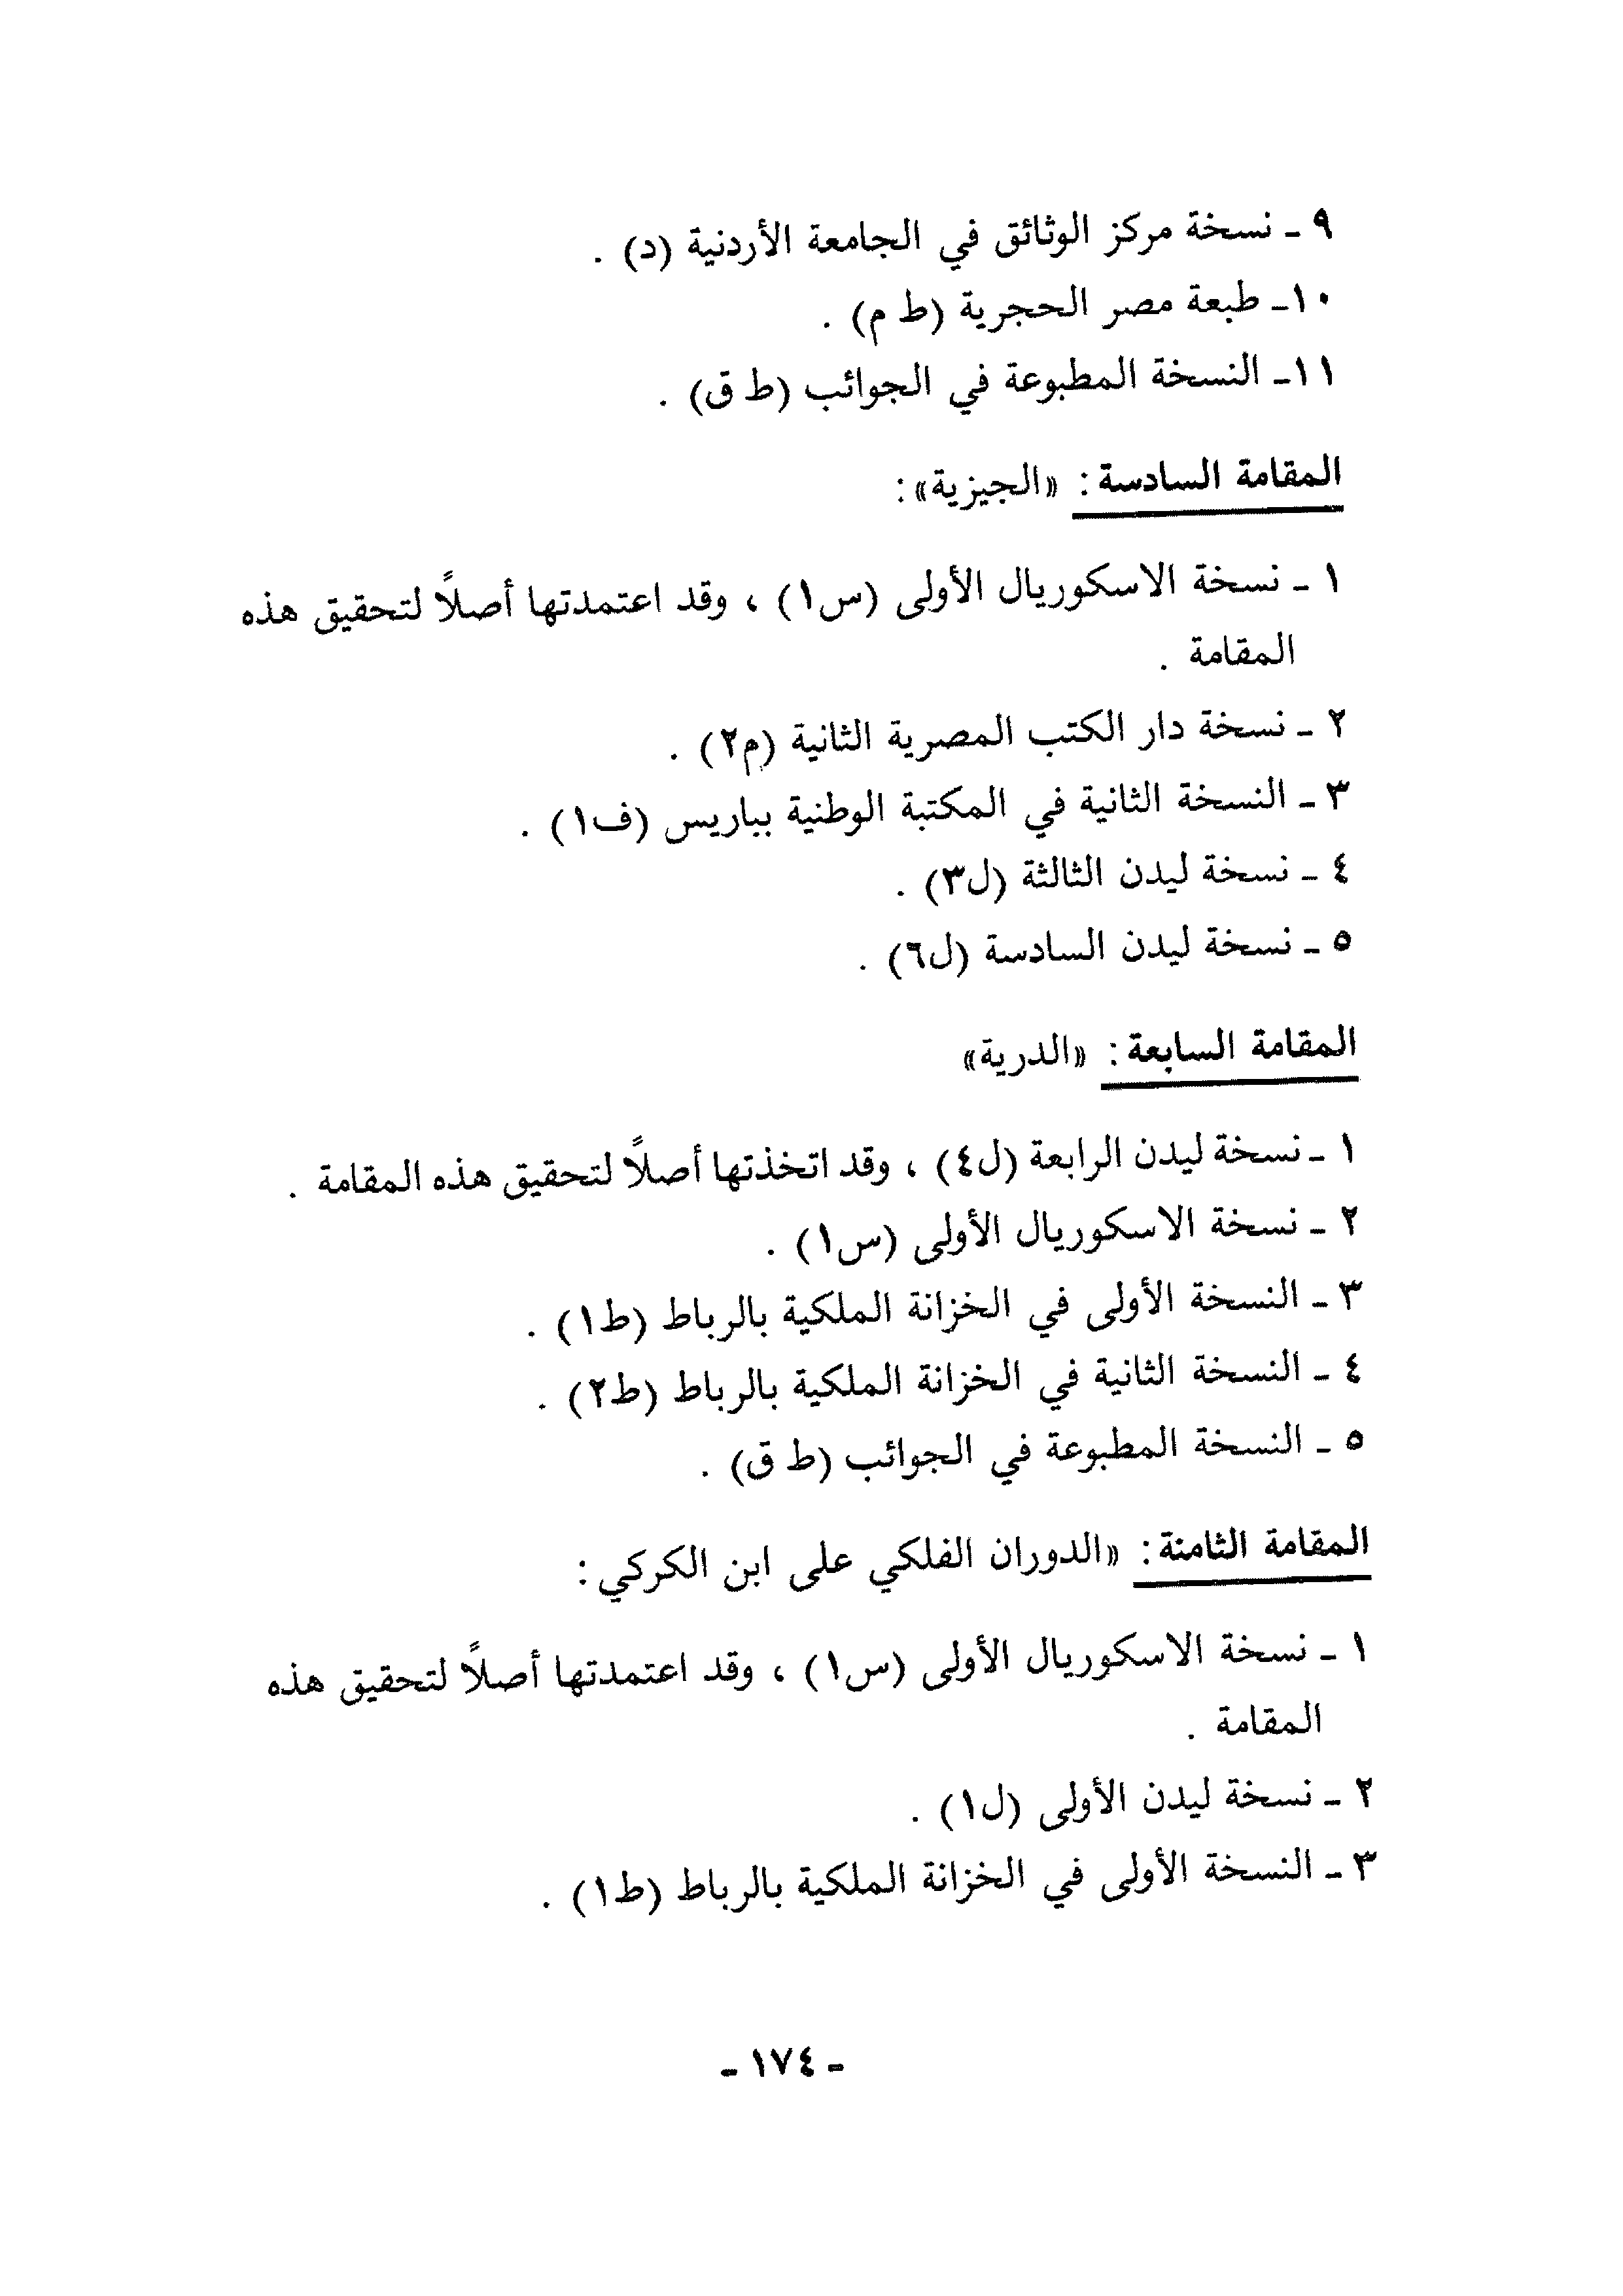 ٩ ـ نسخة مركز الوثائق في الجامعة الأردنية (د) .
١٠ـ طبعة مصر الحجرية (ط م) .
١١ـ النسخة المطبوعة في الجوائب (ط ق) .
المقامة السادسة : «الجيزية»:
١ ـ نسخة الاسكوريال الأولى (س١) ، وقد اعتمدتها أصلاً لتحقيق هذه
المقامة .
٢ ـ نسخة دار الكتب المصرية الثانية (م٢) .
٣ ـ النسخة الثانية في المكتبة الوطنية بباريس (ف١) .
٤ ـ نسخة ليدن الثالثة (ل٣) .
٥ ـ نسخة ليدن السادسة (ل٦) .
المقامة السابعة : «الدرية»
١ ـ نسخة ليدن الرابعة (ل٤) ، وقد اتخذتها أصلاً لتحقيق هذه المقامة .
٢ ـ نسخة الاسكوريال الأولى (س١) .
٣ ـ النسخة الأولى في الخزانة الملكية بالرباط (ط١) .
٤ ـ النسخة الثانية في الخزانة الملكية بالرباط (ط٢) .
٥ ـ النسخة المطبوعة في الجوائب (ط ق) .
المقامة الثامنة : «الدوران الفلكي على ابن الكركي :
١ ـ نسخة الاسكوريال الأولى (س١) ، وقد اعتمدتها أصلاً لتحقيق هذه
المقامة .
٢ ـ نسخة ليدن الأولى (ل١) .
٣ ـ النسخة الأولى في الخزانة الملكية بالرباط (ط١) .
ـ ١٧٤ ـ